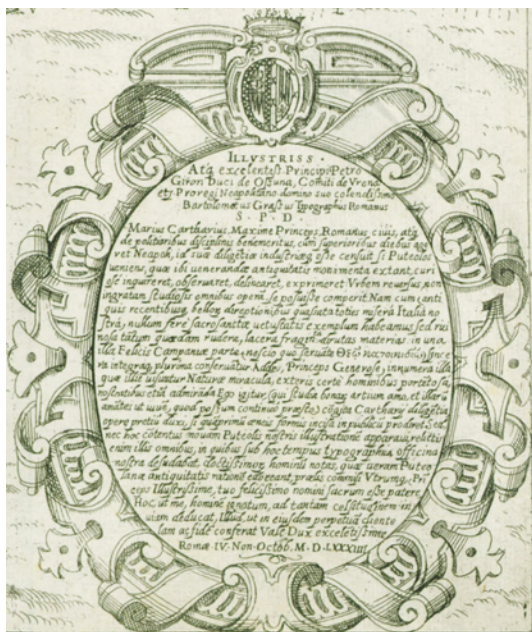 ILLVSTRISS.
Atq. excelentiss. Principi Petro
Giron Duci de Ossuna, Comiti de Vrena
et Proregi Neapolitano domino suo colendissimo
Bartolomæus Grassus Typographus Romanus
S. P. D.
Marius Cartharius, Maxime Princeps, Romanus civis, atq.
de politioribus disciplinis benemeritus, cum superioribus diebus age
ret Neapoli, id suæ diligētiæ industriæq. esse censuit si Puteolos
veniens, quæ ibi venerandæ antiquitatis monimenta extant, curi
ose inquireret, observaret, delinearet, exprimeret Vrbem reversus, non
ingratam studiosis omnibus operā se posuisse comperit Nam cum anti
quis recentibusq. bellor. direptionibus quassata toties misera Italia no
stra, nullum fere sacrosanctæ vetustatis exemplum habeamus sed rui
nosa tātum quædam rudera, lacera fragmēta, dirutas materias, in una
illa Felicis Campaniæ parte, nescio quo servante since
ra integraq. plurima conservātur Adde, Princeps Generose, innumera illa
quæ illic visūtur Naturæ miracula, exteris certe hominibus portētosa,
nostratibus etiā admirāda Ego igitur, qui studia bonar. artium amo, et illarū
amātes ut iuvē, quod possum continuo præsto, egregia Cartharij diligētia
operæ pretiū duxi, si quæprimū æneis formis incisa in publicū prodiret Sed
nec hoc cōtentus novam Puteolis nostris illustrationē apparavi, relictis
enim illis omnibus, in quibus sub hoc tempus typographica officina
nostra desudabat, doctissimor. hominū notas, quæ veram Puteo
lanæ antiquitatis rationē edoceant, prælis commisi Vtrumq. Pri
ceps Illustrissime, tuo felicissimo nomini sacrum esse patere
Hoc, ut me, hominē ignotum, ad tantam celsitudinem in
viam deducat, Illud, ut in eiusdem perpetuā cliente
lam ac fidē conferat Vale Dux excelētissime
Romæ IV. Non. Octob. M. D. LXXXIIII